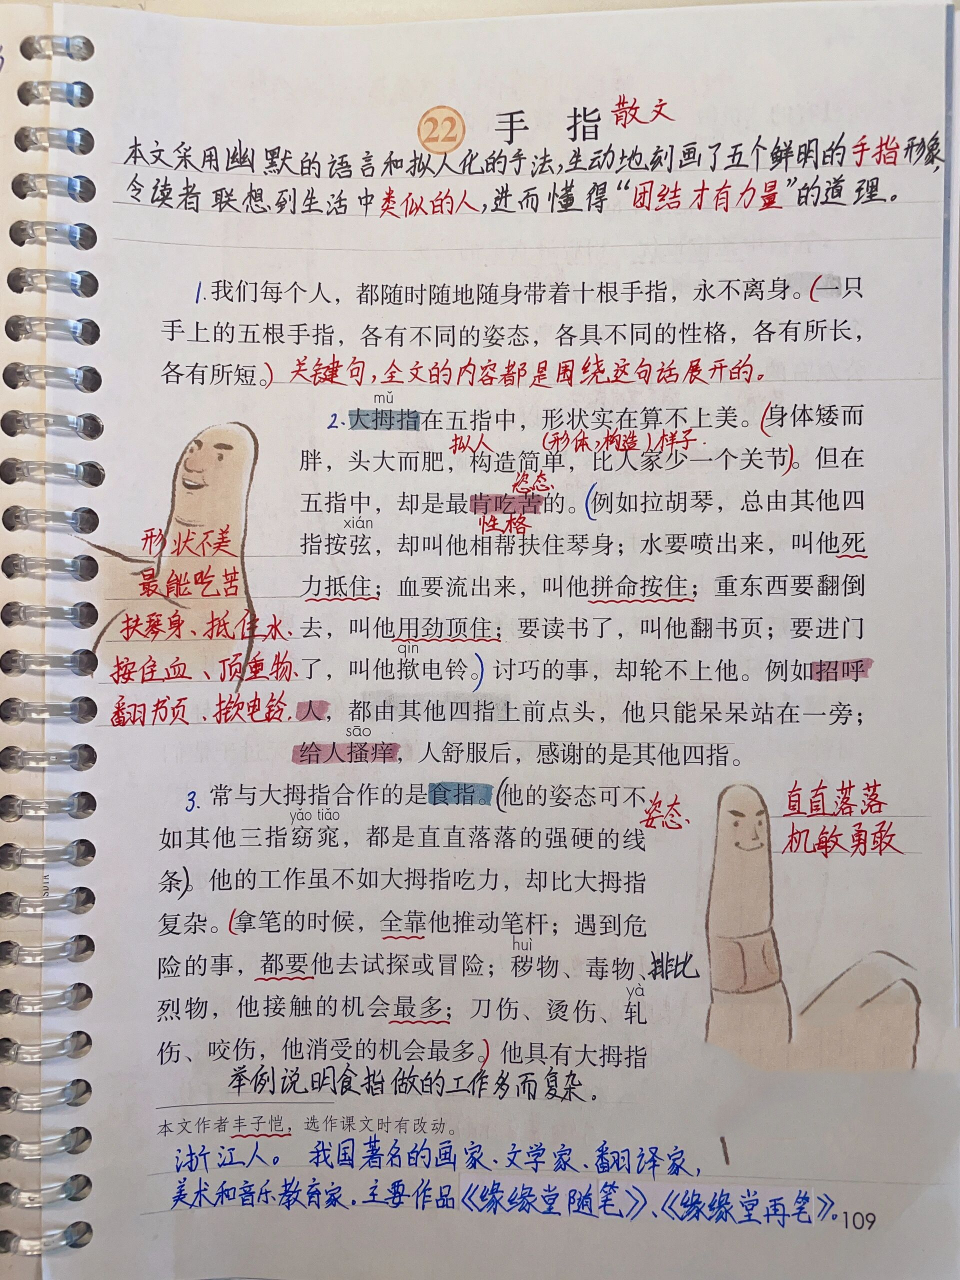 22 手指 散文
本文采用幽默的语言和拟人化的手法,生动地刻画了五个鲜明的手指形象,
令读者联想到生活中类似的人,进而懂得“团结才有力量”的道理。
1.我们每个人，都随时随地随身带着十根手指，永不离身。(一只
手上的五根手指，各有不同的姿态，各具不同的性格，各有所长，
各有所短。) 关键句,全文的内容都是围绕这句话展开的。
mǔ
2.大拇指在五指中，形状实在算不上美。(身体矮而
拟人 (形体,构造)样子.
胖，头大而肥，构造简单，比人家少一个关节)。但在
姿态
五指中，却是最肯吃苦的。(例如拉胡琴，总由其他四
xián 性格
指按弦，却叫他相帮扶住琴身；水要喷出来，叫他死
力抵住；血要流出来，叫他拼命按住；重东西要翻倒
去，叫他用劲顶住；要读书了，叫他翻书页；要进门
qìn
了，叫他揿电铃。)讨巧的事，却轮不上他。例如招呼
人，都由其他四指上前点头，他只能呆呆站在一旁；
sāo
给人搔痒，人舒服后，感谢的是其他四指。
形状不美
最能吃苦
扶琴身、抵住水、
按住血、顶重物、
翻书页、揿电铃.
3.常与大拇指合作的是食指。(他的姿态可不
姿态
yǎo tiǎo
如其他三指窈窕，都是直直落落的强硬的线
条)。他的工作虽不如大拇指吃力，却比大拇指
复杂。(拿笔的时候，全靠他推动笔杆；遇到危
huì
险的事，都要他去试探或冒险；秽物、毒物、排比
yà
烈物，他接触的机会最多；刀伤、烫伤、轧
伤、咬伤，他消受的机会最多。)他具有大拇指
直直落落
机敏勇敢
举例说明食指做的工作多而复杂。
本文作者丰子恺，选作课文时有改动。
浙江人。我国著名的画家、文学家、翻译家,
美术和音乐教育家.主要作品《缘缘堂随笔》、《缘缘堂再笔》。
109